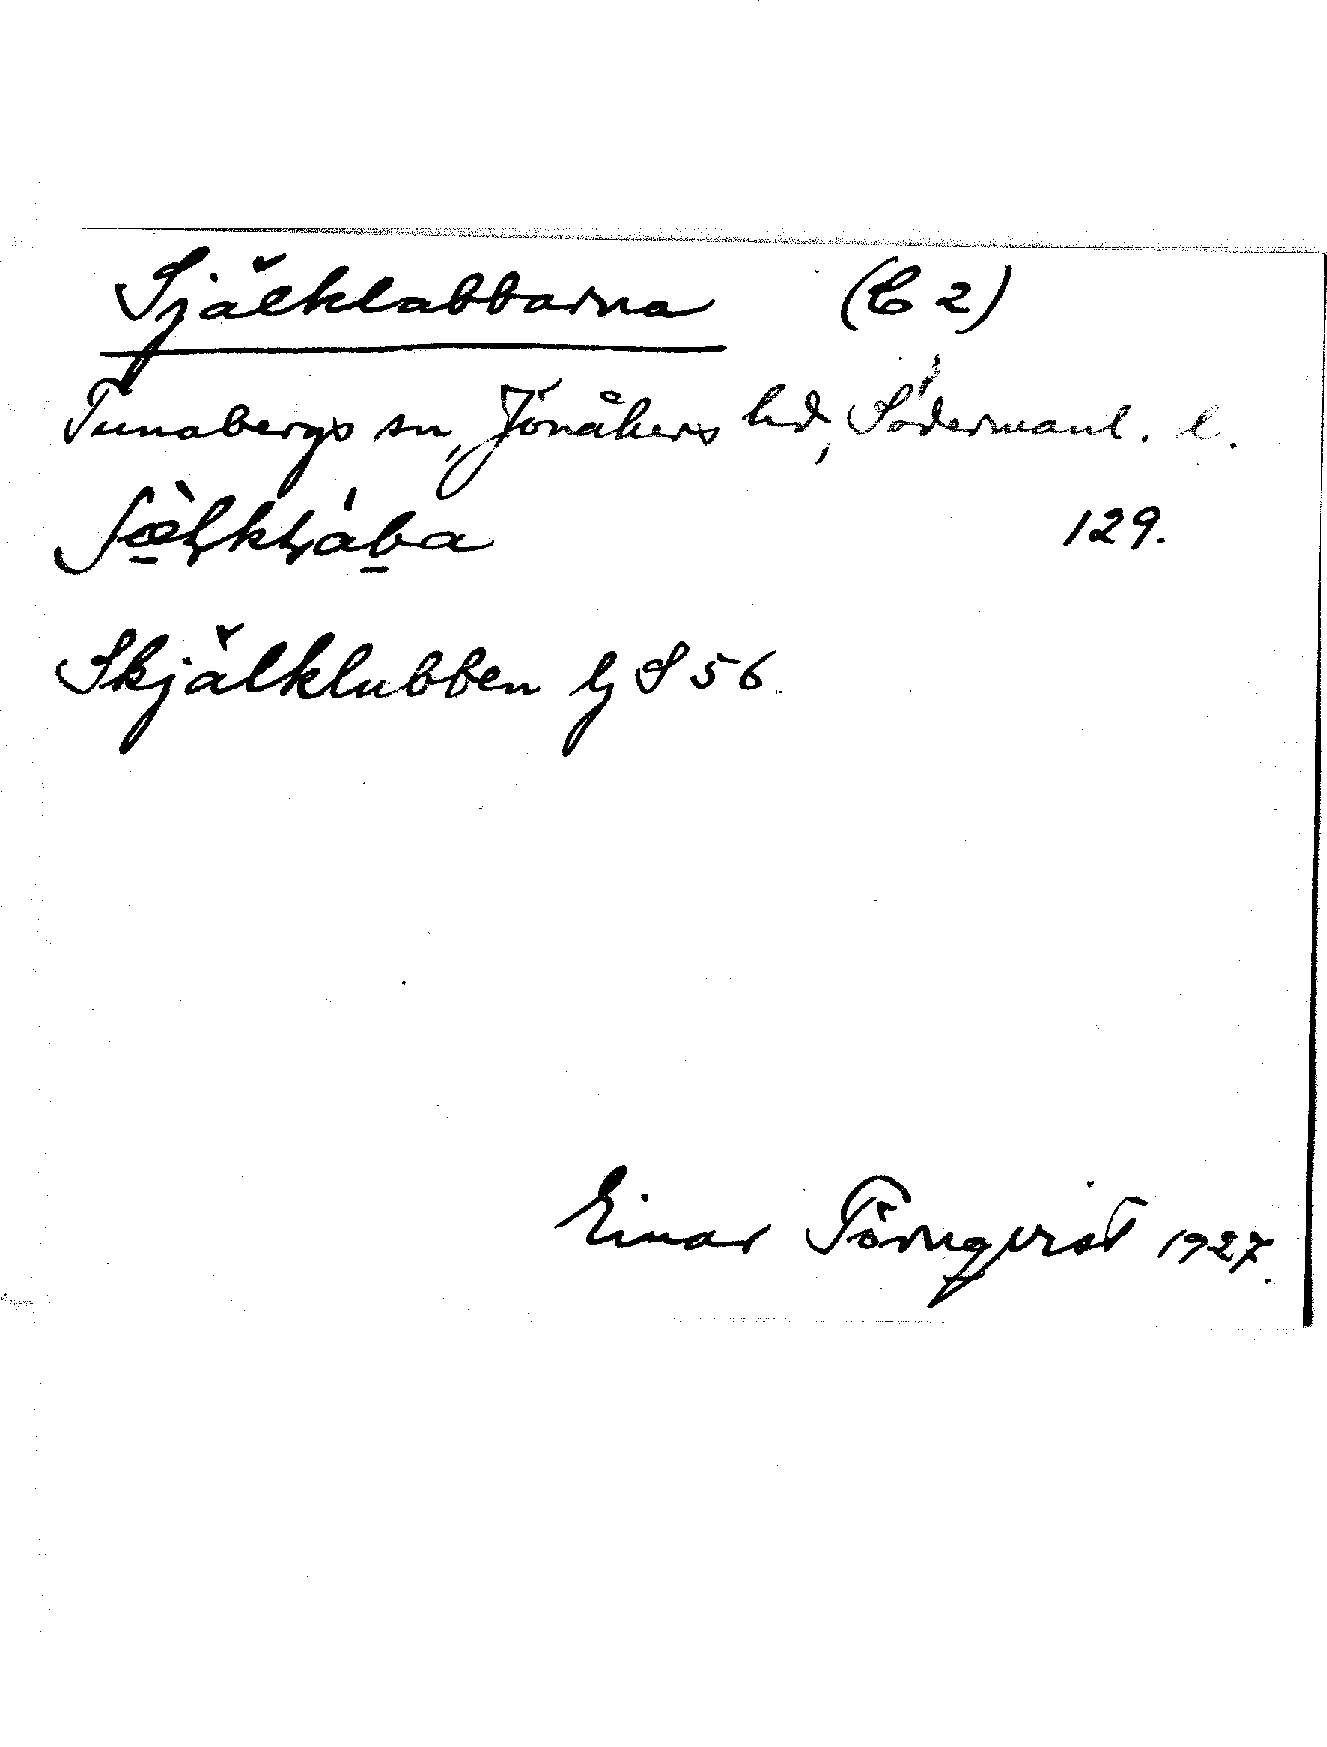 Själklabbarna (C 2)
Tunabergs sn, Jönåkers hd, Södermanl. l.
129.
Skjälklubben Lj S 56
Einar Törnqvist 1927.